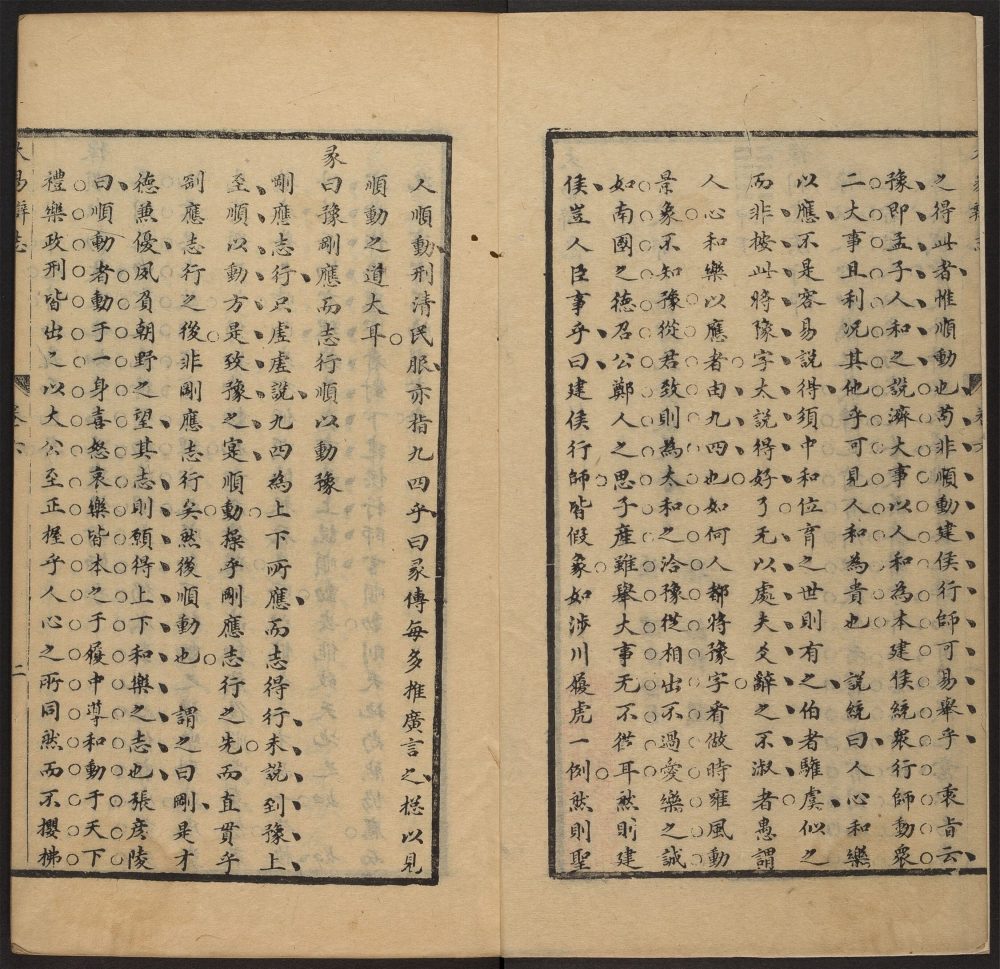 之得此者惟順動也苟非順動建侯行師可易舉乎衷旨云
豫即孟子人和之說濟大事以人和為本建侯統衆行師動衆
二大事且利況其他乎可見人和為貴也 說統曰人心和樂
以應不是容易說得須中和位育之世則有之伯者驩虞似之
而非按此將豫字太說得好了无以處夫爻辭之不淑者愚謂
人心和樂以應者由九四也如何人都將豫字看做時雍風動
景象不知豫從君致則為太和之洽豫從相出不過愛樂之誠
如南國之徳召公鄭人之思子產雖舉大事无不從耳然則建
侯豈人臣事乎曰建侯行師皆假象如涉川履虎一例然則聖
人順動刑清民服亦指九四乎曰彖傳每多推廣言之總以見
順動之道大耳
彖曰豫剛應而志行順以動豫
剛應志行只虛虛說九四為上下所應而志得行未說到豫上
至順以動方是致豫之寔順動操乎剛應志行之先而直貫乎
剛應志行之後非剛應志行矣然後順動也 謂之曰剛是才
徳兼優夙負朝野之望其志則願得上下和樂之志也張彥陵
曰順動者動于一身喜怒哀樂皆本之于履中導和動于天下
禮樂政刑皆出之以大公至正握乎人心之所同然而不攖拂
易辭志
卷六
二